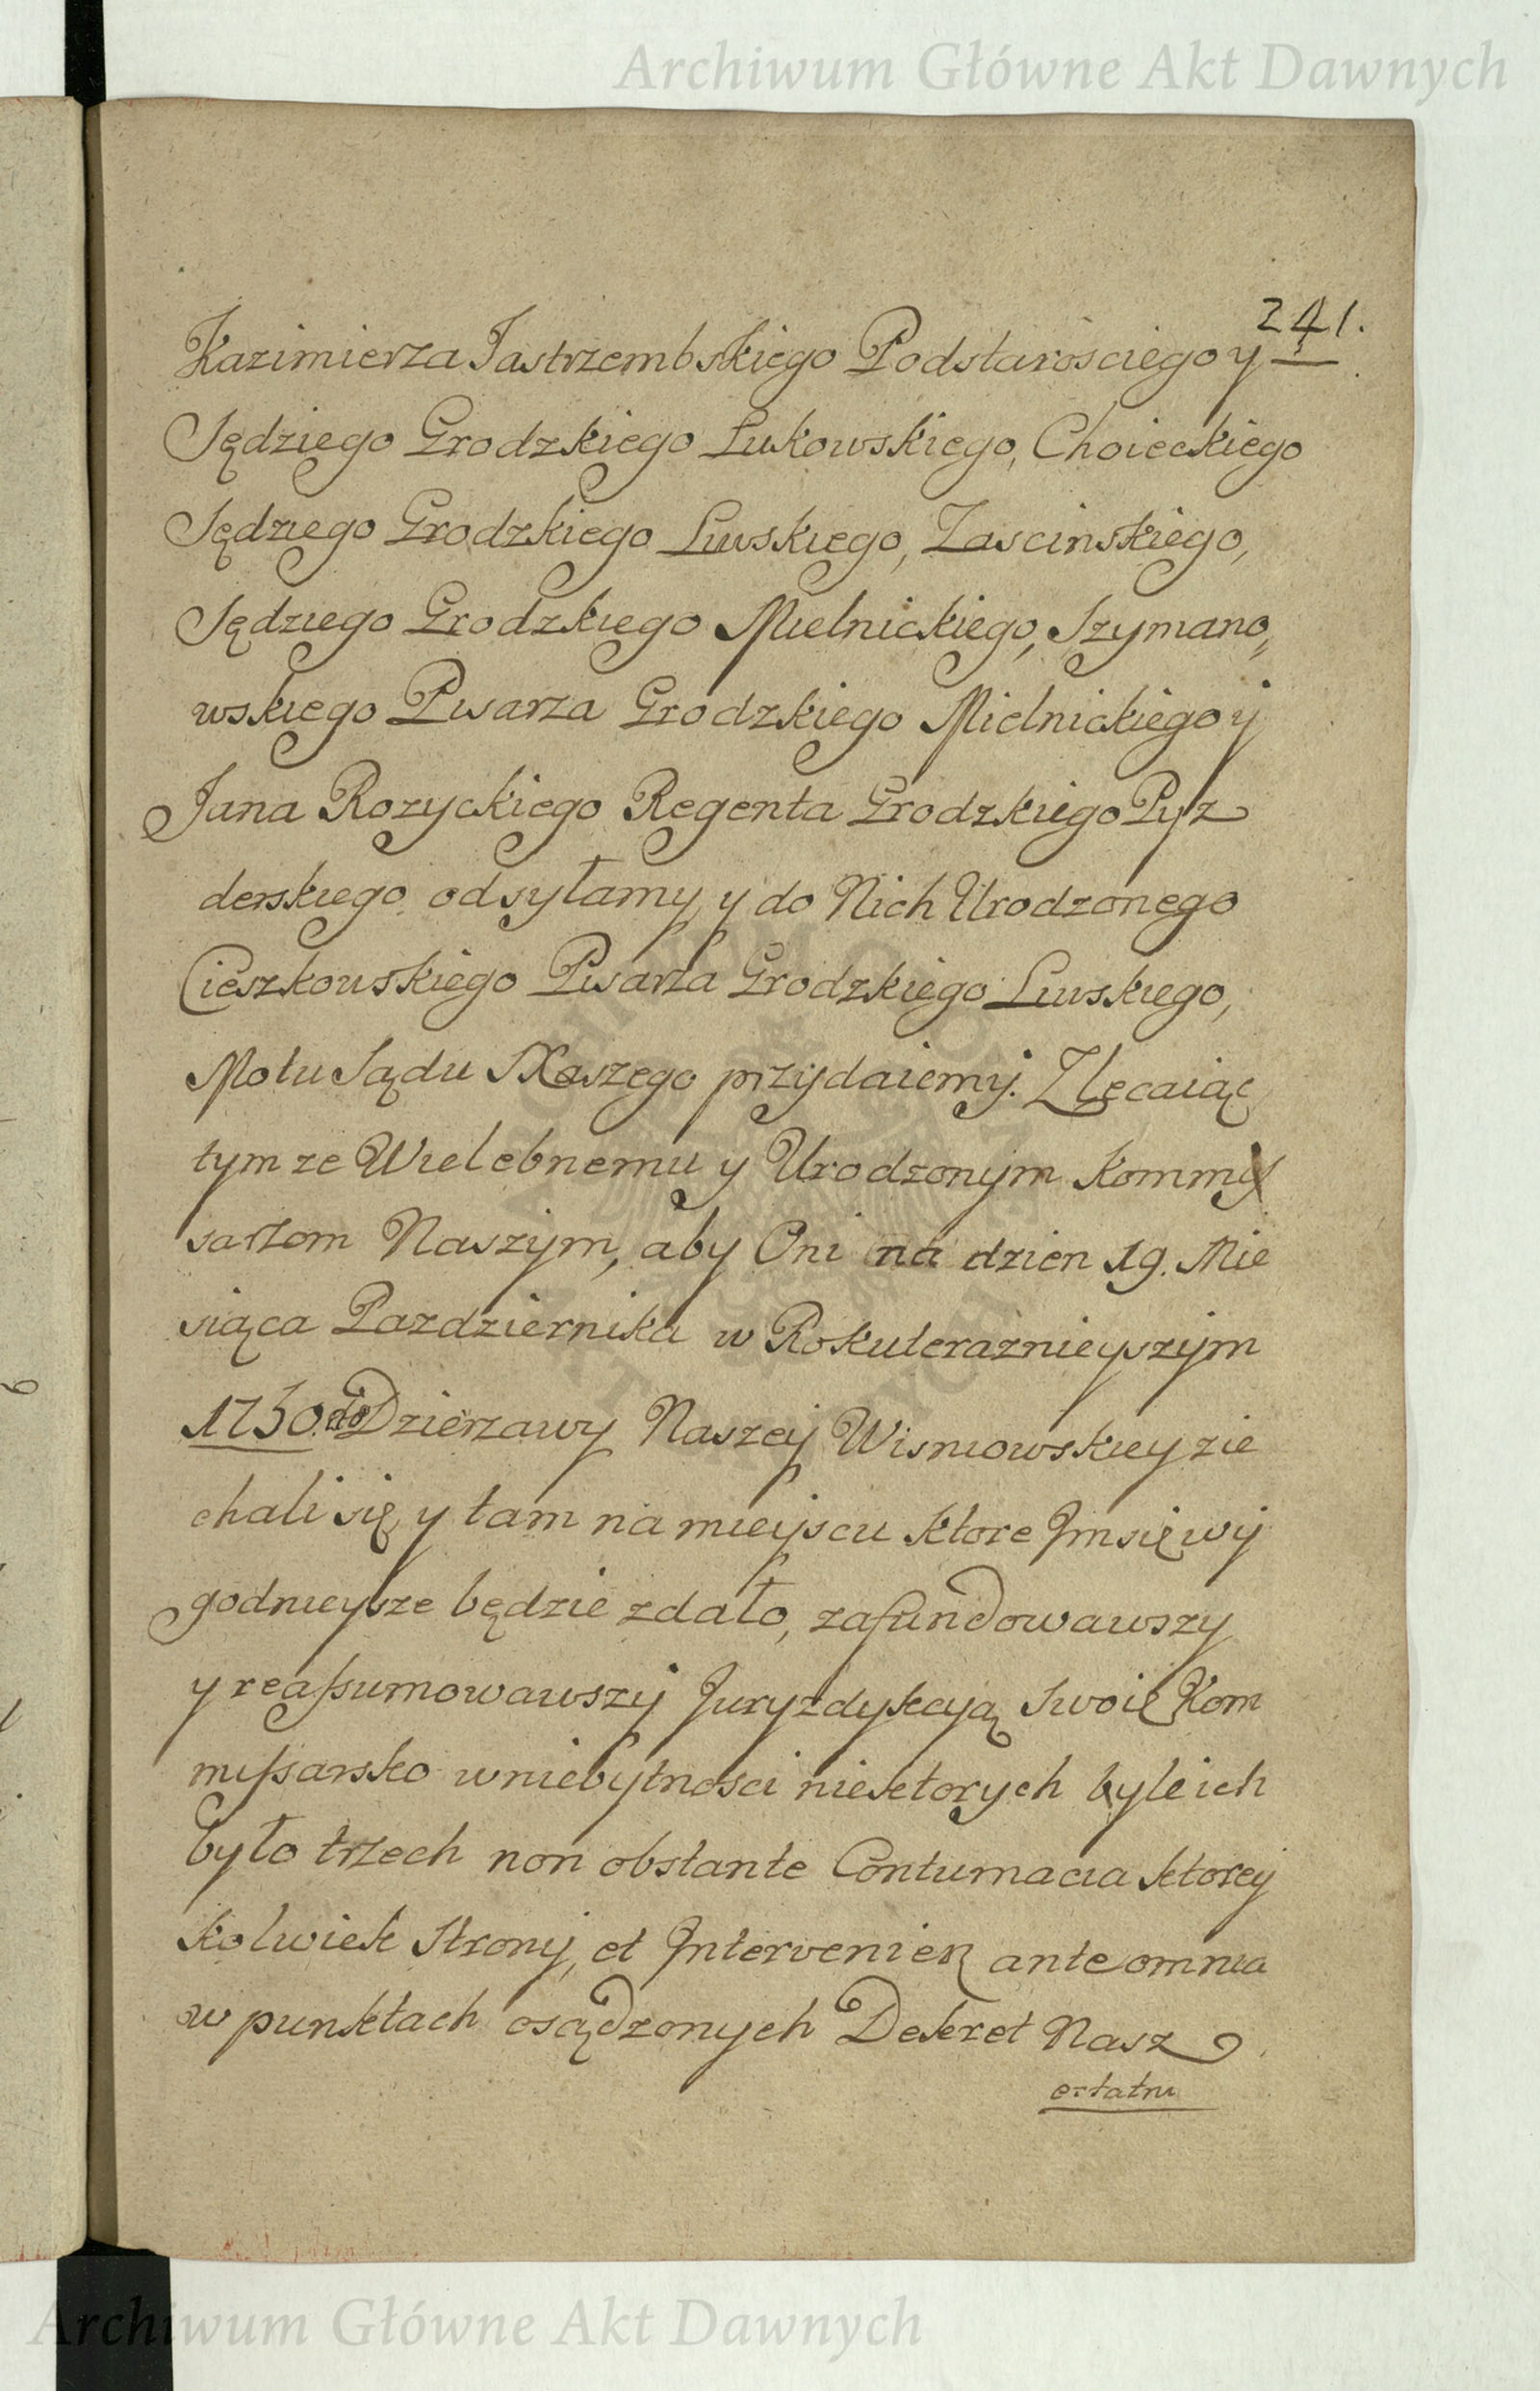 Archiwum Główne Akt Dawnych
241.
Kazimierza Jastrzembskiego Podstarosciego y
Sędziego Grodzkiego Łukowskiego, Choieckiego
Sędziego Grodzkiego Liwskiego, Zascinskiego,
Sędziego Grodzkiego Mielnickiego, Szymano,
wskiego Pisarza Grodzkiego Mielnickiego y
Jana Rozyckiego Regenta Grodzkiego Pyz
derskiego odsyłamy, y do Nich Urodzonego
Cieszkowskiego Pisarza Grodzkiego Liwskiego,
Motu Sądu Naszego przydaiemy. Zlęcaiąc
tym ze Wielebnemu y Urodzonym Kommy
sarzom Naszym, aby Oni na dzien 19. Mie
siąca Pazdziernika w Roku teraznieyszym
1750. do Dzierzawy Naszey Wisniowskiey zie
chali się, y tam na mieyscu ktore Jm się wy
godnieysze będzie zdało, zafundowawszy
y reaſsumowawszy Juryzdykcyą Swoię Kom
miſsarsko w niebytnosci niektorych byle ich
było trzech non obstante Contumacia ktorey
kolwiek Strony, et Intervenien ante omnia
w punktach osądzonych Dekret Nasz
ostatni
Archiwum Główne Akt Dawnych